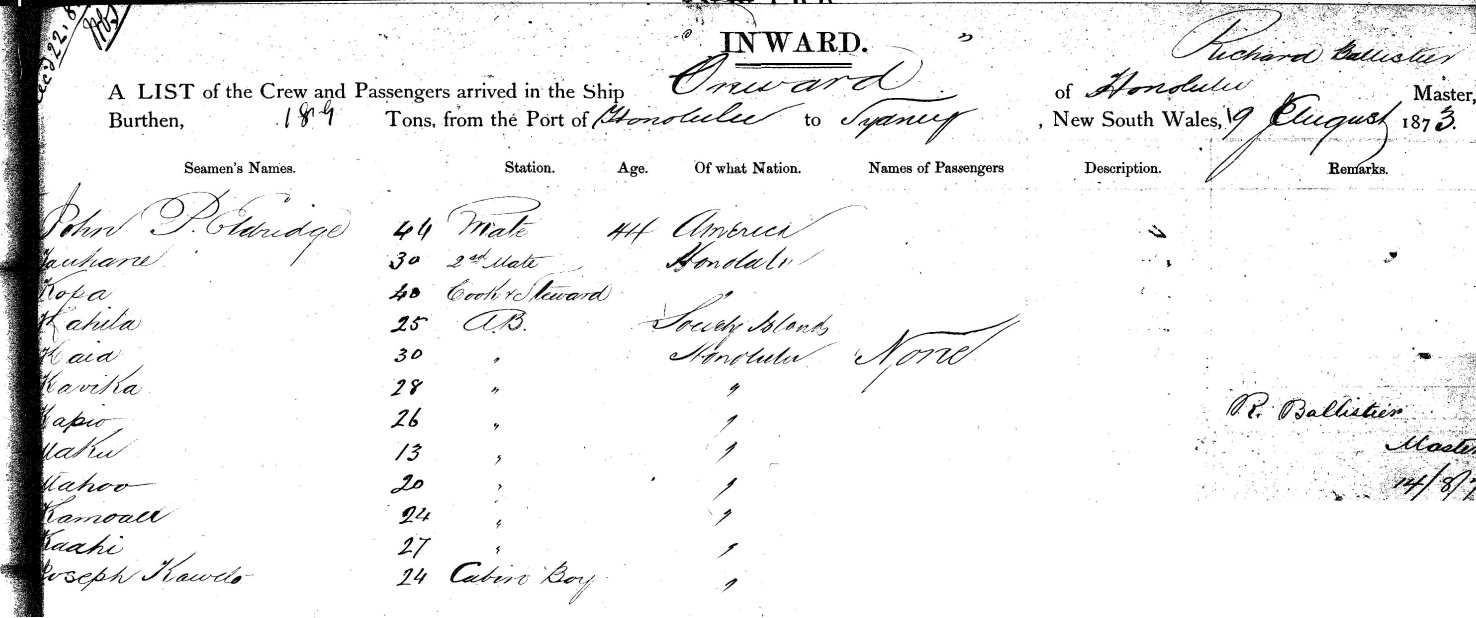 INWARD.
Richard Ballistier
A LIST of the Crew and Passengers arrived in the Ship Onward of Honolulu Master,
Burthen, 189 Tons, from the Port of Honolulu to Sydney, New South Wales, 19 August 1873.
Seamen's Names. Station. Age. Of what Nation. Names of Passengers Description. Remarks.
John P. Eldridge 44 Mate 44 America
30 2nd Mate Honolulu
Kopa 40 Cook & Steward "
Kahila 25 A.B. Society Islands
Kaia 30 " Honolulu None
Kavika 28 " "
Kapio 26 " " R. Ballistier
Maku 13 " " Master
Mahoo 20 " " 14/8/7
Kamoau 24 " "
Kaahi 27 " "
Joseph Kawelo 24 Cabin Boy "